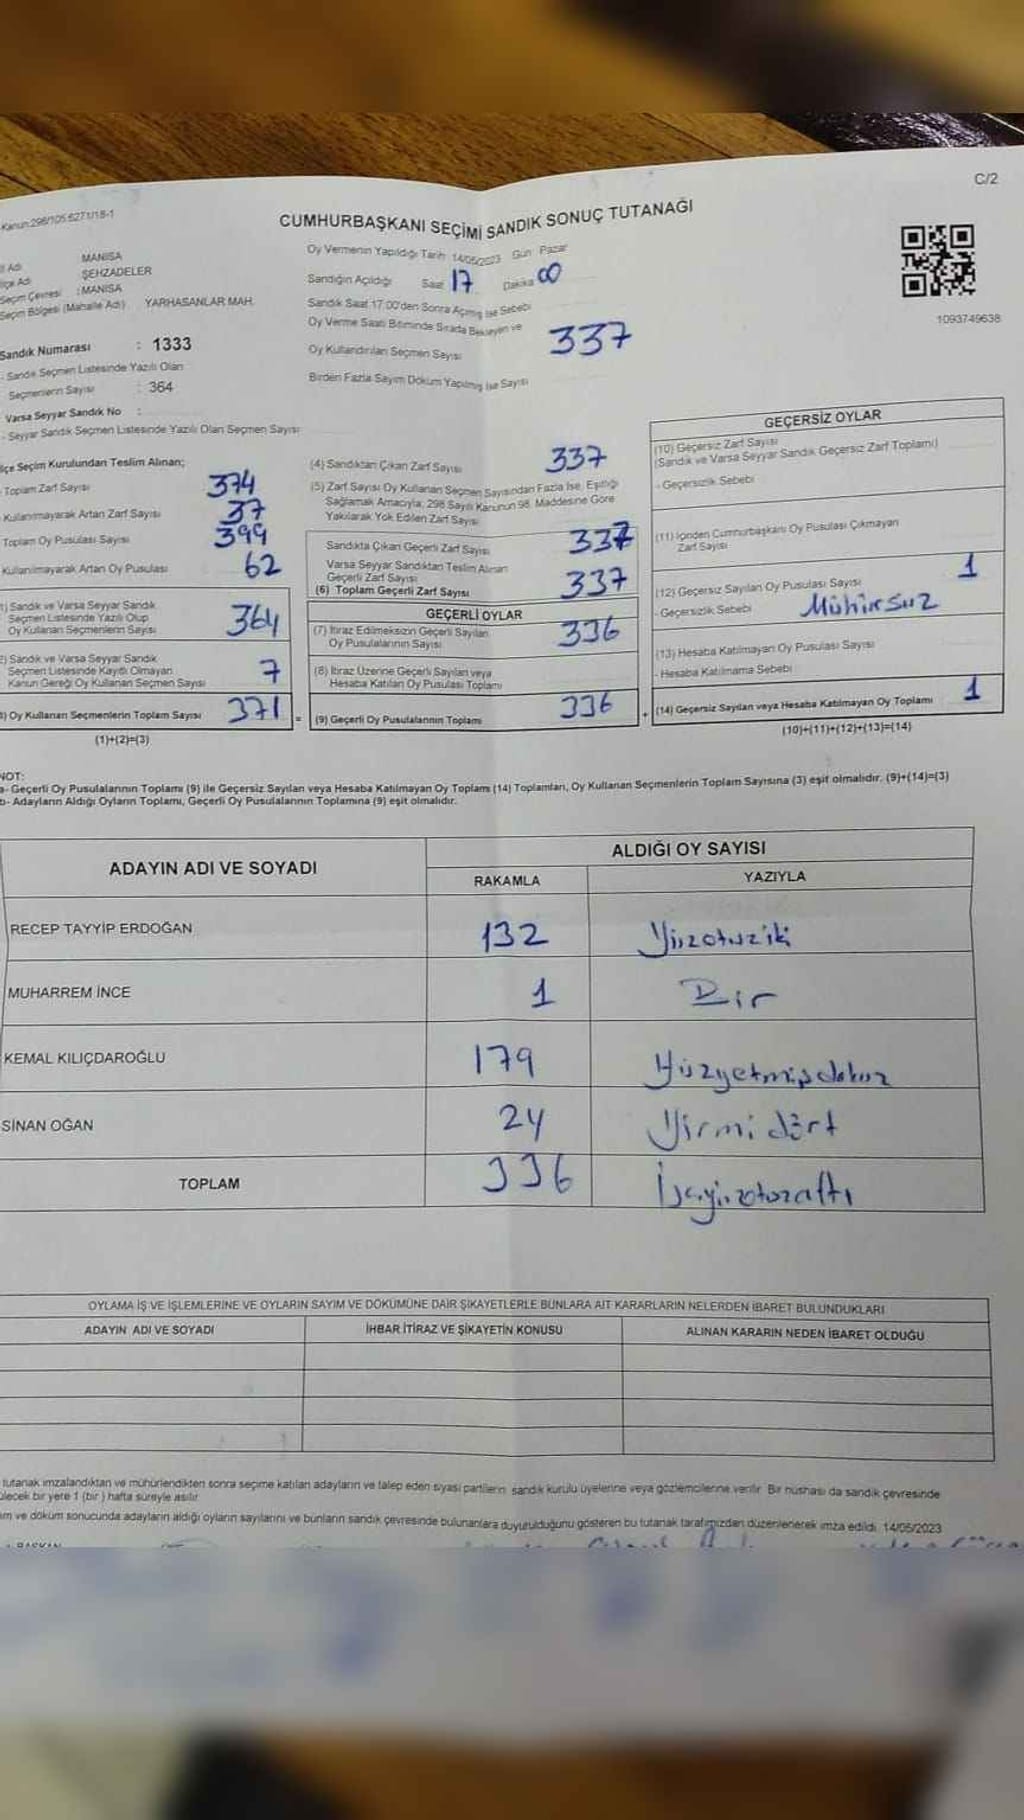 C/2
Kanun:298/105.6271/18-1
CUMHURBAŞKANI SEÇİMİ SANDIK SONUÇ TUTANAĞI
İl Adı MANİSA
İlçe Adı ŞEHZADELER
Seçim Çevresi : MANİSA
Seçim Bölgesi (Mahalle Adı) YARHASANLAR MAH.
Oy Vermenin Yapıldığı Tarih 14/05/2023 Gün Pazar
Sandığın Açıldığı Saat 17 Dakika 00
Sandık Saat 17.00'den Sonra Açılmış İse Sebebi
Oy Verme Saati Bitiminde Sırada Bekleyen ve
Oy Kullandırılan Seçmen Sayısı 337
Birden Fazla Sayım Döküm Yapılmış İse Sayısı
1093749638
Sandık Numarası : 1333
- Sandık Seçmen Listesinde Yazılı Olan
Seçmenlerin Sayısı : 364
Varsa Seyyar Sandık No :
- Seyyar Sandık Seçmen Listesinde Yazılı Olan Seçmen Sayısı
İlçe Seçim Kurulundan Teslim Alınan;
Toplam Zarf Sayısı 374
Kullanılmayarak Artan Zarf Sayısı 37
Toplam Oy Pusulası Sayısı 399
Kullanılmayarak Artan Oy Pusulası 62
1) Sandık ve Varsa Seyyar Sandık
Seçmen Listesinde Yazılı Olup
Oy Kullanan Seçmenlerin Sayısı 364
2) Sandık ve Varsa Seyyar Sandık
Seçmen Listesinde Kayıtlı Olmayan
Kanun Gereği Oy Kullanan Seçmen Sayısı 7
3) Oy Kullanan Seçmenlerin Toplam Sayısı 371 =
(1)+(2)=(3)
(4) Sandıktan Çıkan Zarf Sayısı 337
(5) Zarf Sayısı Oy Kullanan Seçmen Sayısından Fazla İse, Eşitliği
Sağlamak Amacıyla, 298 Sayılı Kanunun 98. Maddesine Göre
Yakılarak Yok Edilen Zarf Sayısı
Sandıkta Çıkan Geçerli Zarf Sayısı 337
Varsa Seyyar Sandıktan Teslim Alınan
Geçerli Zarf Sayısı
(6) Toplam Geçerli Zarf Sayısı 337
GEÇERLİ OYLAR
(7) İtiraz Edilmeksizin Geçerli Sayılan
Oy Pusulalarının Sayısı 336
(8) İtiraz Üzerine Geçerli Sayılan veya
Hesaba Katılan Oy Pusulası Toplamı
(9) Geçerli Oy Pusulalarının Toplamı 336 +
GEÇERSİZ OYLAR
(10) Geçersiz Zarf Sayısı
(Sandık ve Varsa Seyyar Sandık Geçersiz Zarf Toplamı)
- Geçersizlik Sebebi
(11) İçinden Cumhurbaşkanı Oy Pusulası Çıkmayan
Zarf Sayısı
(12) Geçersiz Sayılan Oy Pusulası Sayısı 1
- Geçersizlik Sebebi Mühürsüz
(13) Hesaba Katılmayan Oy Pusulası Sayısı
- Hesaba Katılmama Sebebi
(14) Geçersiz Sayılan veya Hesaba Katılmayan Oy Toplamı 1
(10)+(11)+(12)+(13)=(14)
NOT:
a- Geçerli Oy Pusulalarının Toplamı (9) ile Geçersiz Sayılan veya Hesaba Katılmayan Oy Toplamı (14) Toplamları, Oy Kullanan Seçmenlerin Toplam Sayısına (3) eşit olmalıdır. (9)+(14)=(3)
b- Adayların Aldığı Oyların Toplamı, Geçerli Oy Pusulalarının Toplamına (9) eşit olmalıdır.
ADAYIN ADI VE SOYADI
ALDIĞI OY SAYISI
RAKAMLA YAZIYLA
RECEP TAYYİP ERDOĞAN 132 Yüzotuziki
MUHARREM İNCE 1 Bir
KEMAL KILIÇDAROĞLU 179 Yüzyetmişdokuz
SİNAN OĞAN 24 Yirmi dört
TOPLAM 336
OYLAMA İŞ VE İŞLEMLERİNE VE OYLARIN SAYIM VE DÖKÜMÜNE DAİR ŞİKAYETLERLE BUNLARA AİT KARARLARIN NELERDEN İBARET BULUNDUKLARI
ADAYIN ADI VE SOYADI İHBAR İTİRAZ VE ŞİKAYETİN KONUSU ALINAN KARARIN NEDEN İBARET OLDUĞU
tutanak imzalandıktan ve mühürlendikten sonra seçime katılan adayların ve talep eden siyasi partilerin sandık kurulu üyelerine veya gözlemcilerine verilir. Bir nüshası da sandık çevresinde
bir yere 1 (bir ) hafta süreyle asılır
ve döküm sonucunda adayların aldığı oyların sayılarını ve bunların sandık çevresinde bulunanlara duyurulduğunu gösteren bu tutanak tarafımızdan düzenlenerek imza edildi. 14/05/2023